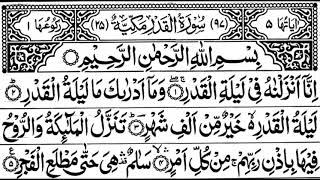 اٰيَاتُهَا ٥ (٩٧) سُوْرَةُ الْقَدْرِ مَكِّيَّةٌ (٢٥) رُكُوْعُهَا ١
بِسْمِ اللّٰهِ الرَّحْمٰنِ الرَّحِيْمِ
اِنَّاۤ اَنْزَلْنٰهُ فِیْ لَيْلَةِ الْقَدْرِ ۚ١ وَمَاۤ اَدْرٰىكَ مَا لَيْلَةُ الْقَدْرِ ؕ٢
لَيْلَةُ الْقَدْرِ ۙ۬ خَيْرٌ مِّنْ اَلْفِ شَهْرٍ ؕ٣ تَنَزَّلُ الْمَلٰٓئِكَةُ وَالرُّوْحُ
فِيْهَا بِاِذْنِ رَبِّهِمْ ۚ مِنْ كُلِّ اَمْرٍ ۙ٤ سَلٰمٌ ۛ۫ هِیَ حَتّٰى مَطْلَعِ الْفَجْرِ ٥